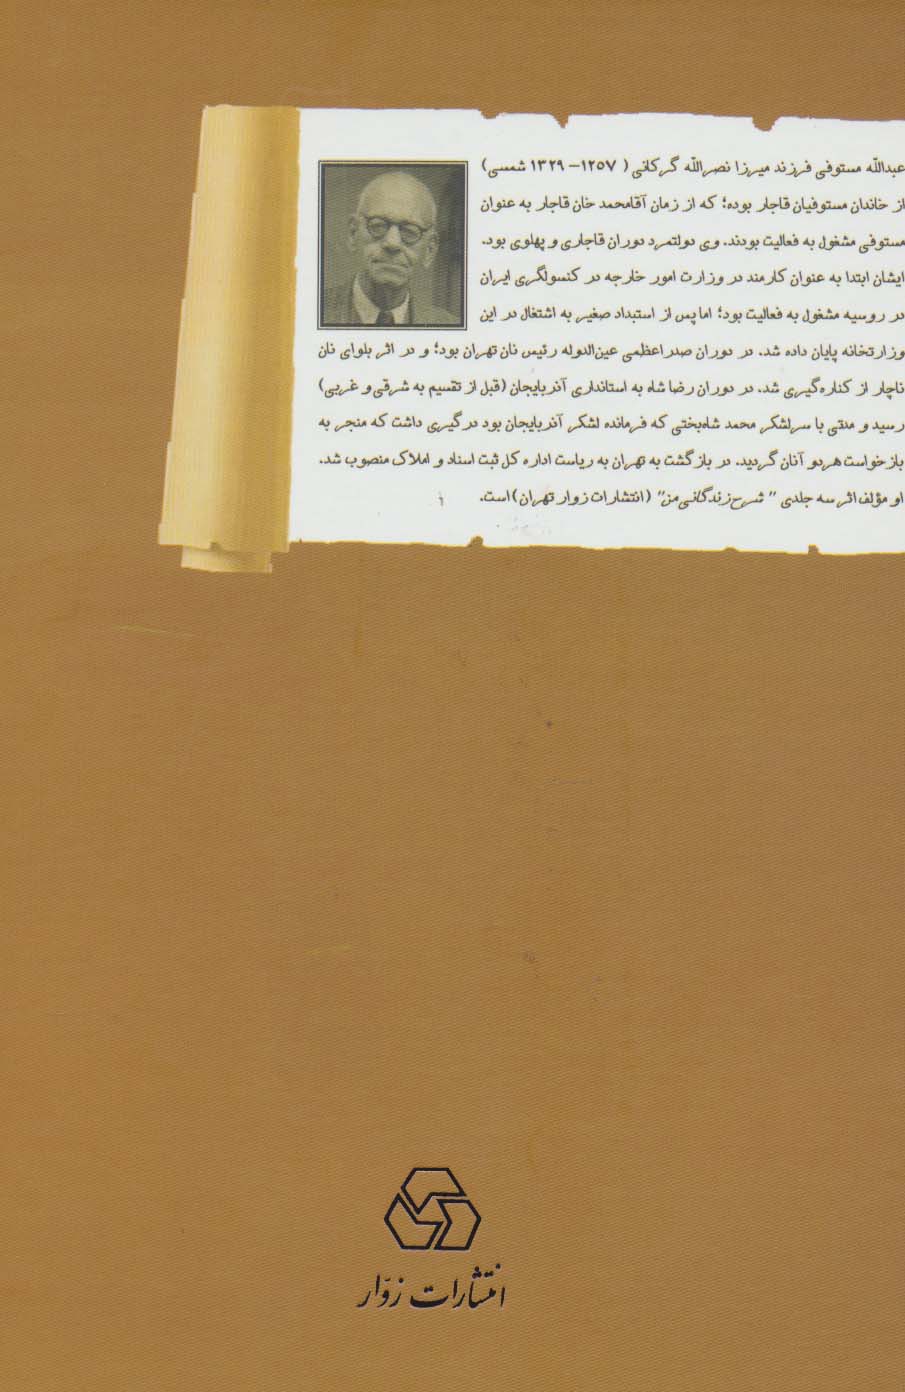 عبداللّه مستوفی فرزند میرزا نصراللّه گرکانی ( ۱۲۵۷– ۱۳۲۹ شمسی)
از خاندان مستوفیان قاجار بوده؛ که از زمان آقامحمد خان قاجار به عنوان
مستوفی مشغول به فعالیت بودند. وی دولتمرد دوران قاجاری و پهلوی بود.
ایشان ابتدا به عنوان کارمند در وزارت امور خارجه در کنسولگری ایران
در روسیه مشغول به فعالیت بود؛ اما پس از استبداد صغیر به اشتغال در این
وزارتخانه پایان داده شد. در دوران صدراعظمی عین‌الدوله رئیس نان تهران بود؛ و در اثر بلوای نان
ناچار از کناره‌گیری شد. در دوران رضا شاه به استانداری آذربایجان (قبل از تقسیم به شرقی و غربی)
رسید و مدتی با سرلشکر محمد شاه‌بختی که فرمانده لشکر آذربایجان بود درگیری داشت که منجر به
بازخواست هردو آنان گردید. در بازگشت به تهران به ریاست اداره کل ثبت اسناد و املاک منصوب شد.
او مؤلف اثر سه جلدی "شرح زندگانی من" (انتشارات زوار تهران) است.
انتشارات زوّار